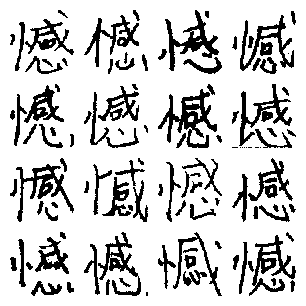 憾憾憾憾
憾憾憾憾
憾憾憾憾
憾憾憾憾